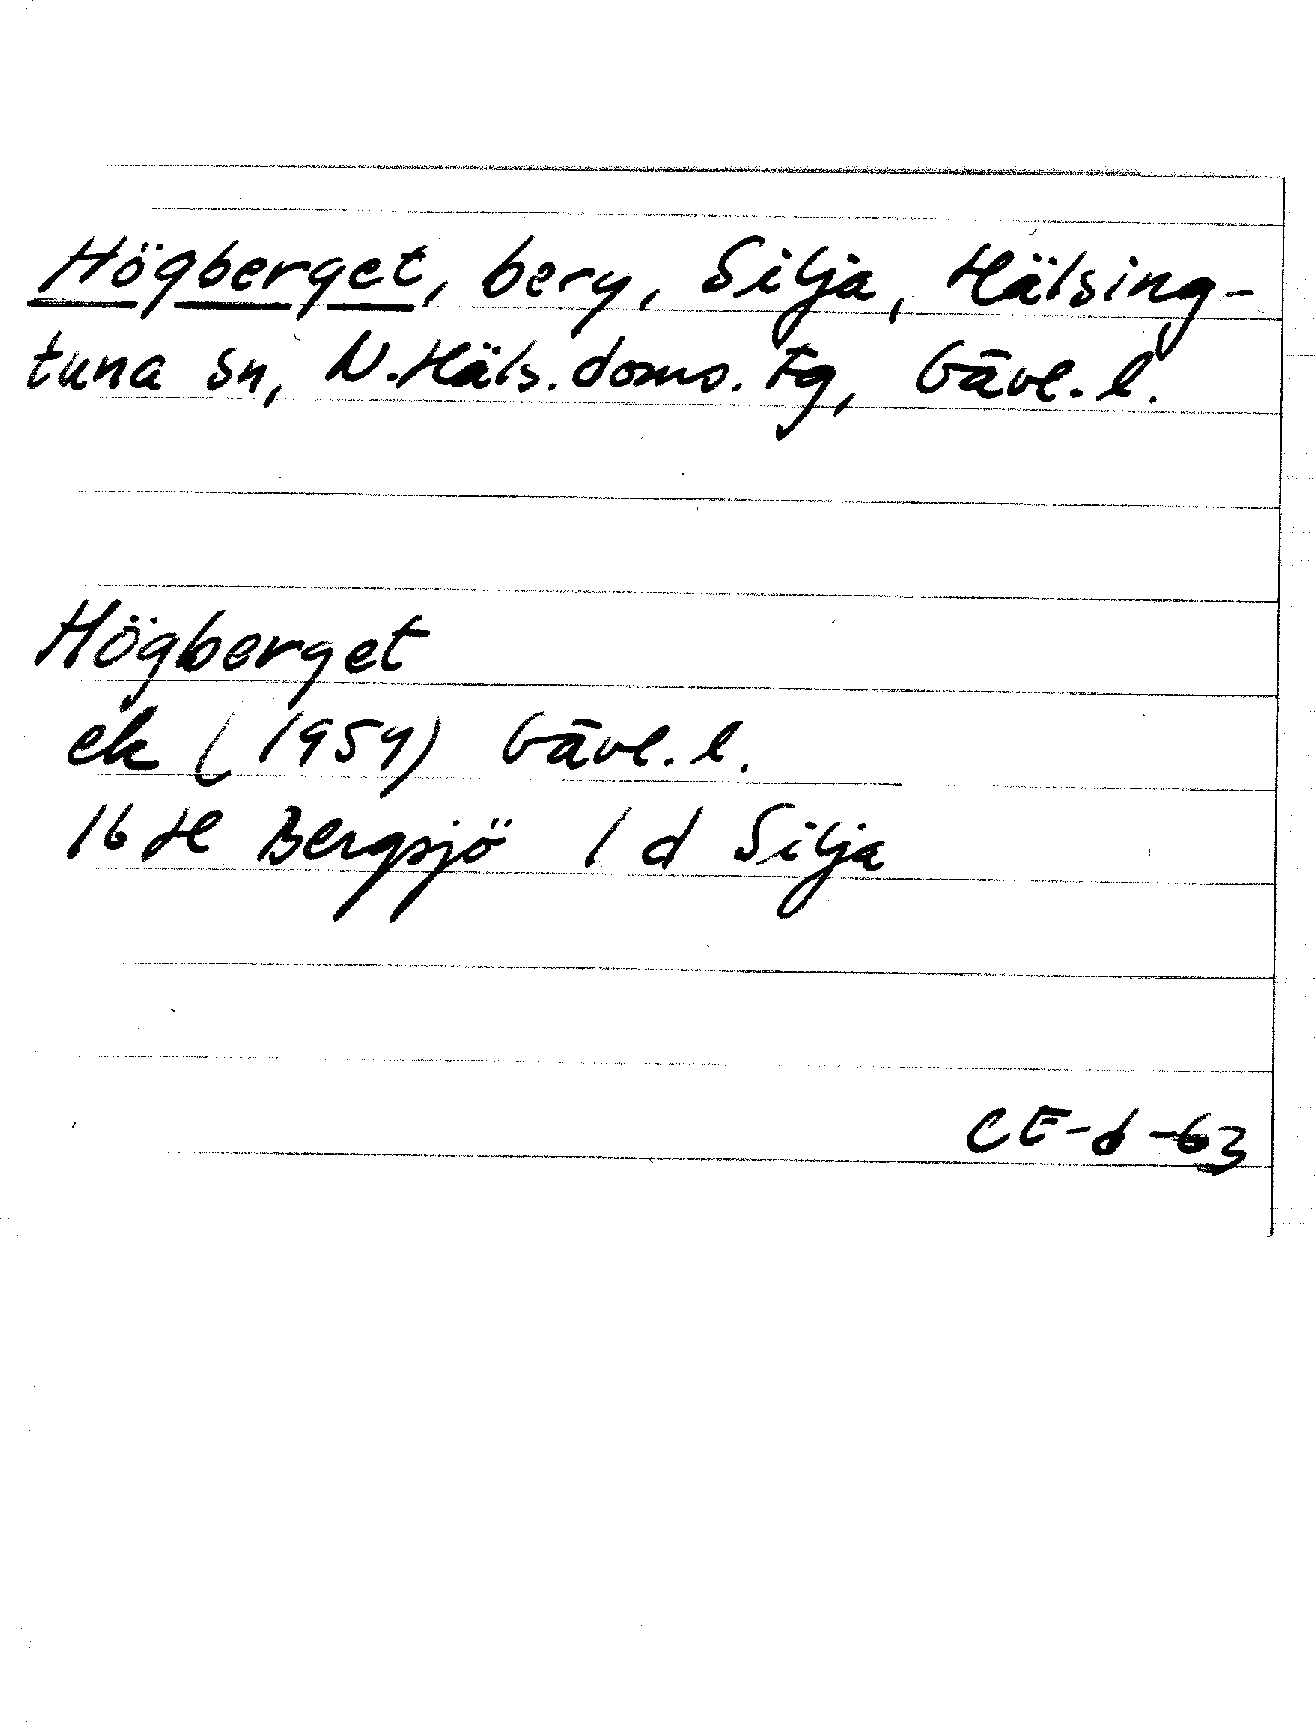 Högberget, berg, Silja, Hälsing-
tuna sn, N. Häls. doms. tg, Gävl. l.
Högberget
ek (1959) Gävl. l.
16 H Bergsjö 1 d Silja
CE-d-63